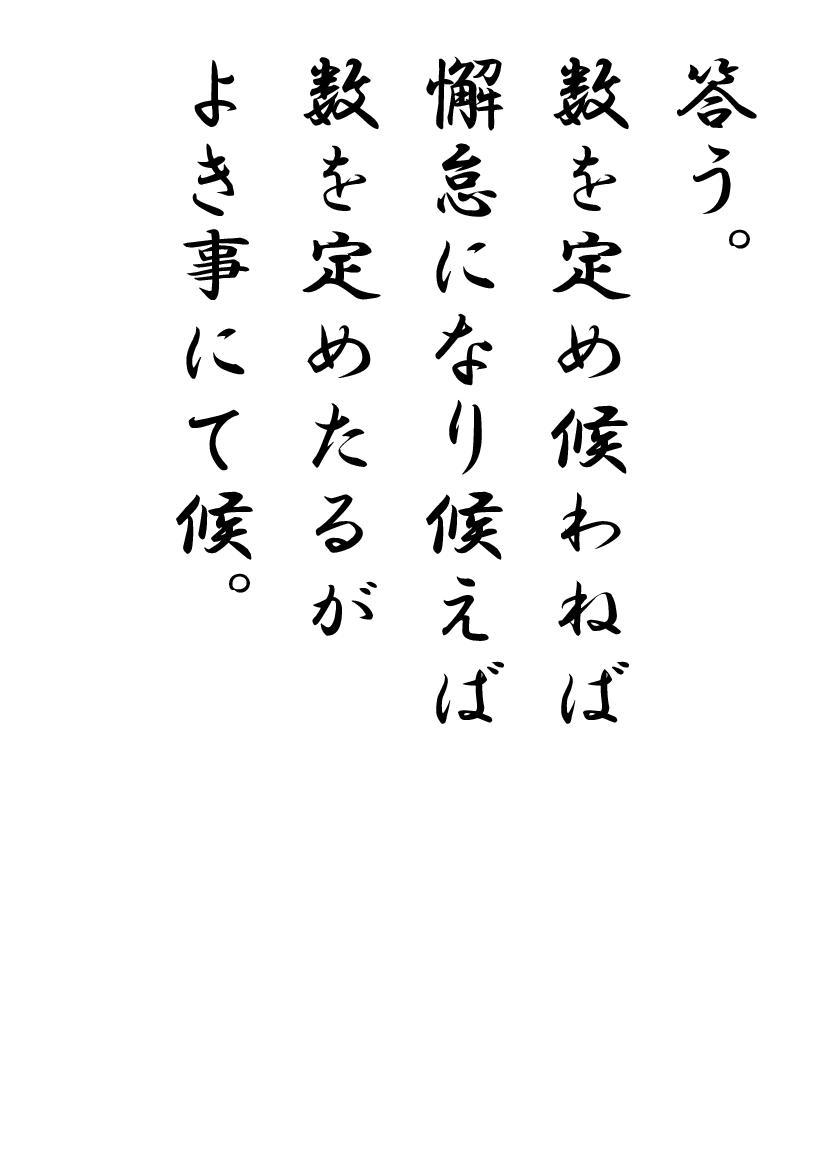 答う。
数を定め候わねば
懈怠になり候えば
数を定めたるが
よき事にて候。